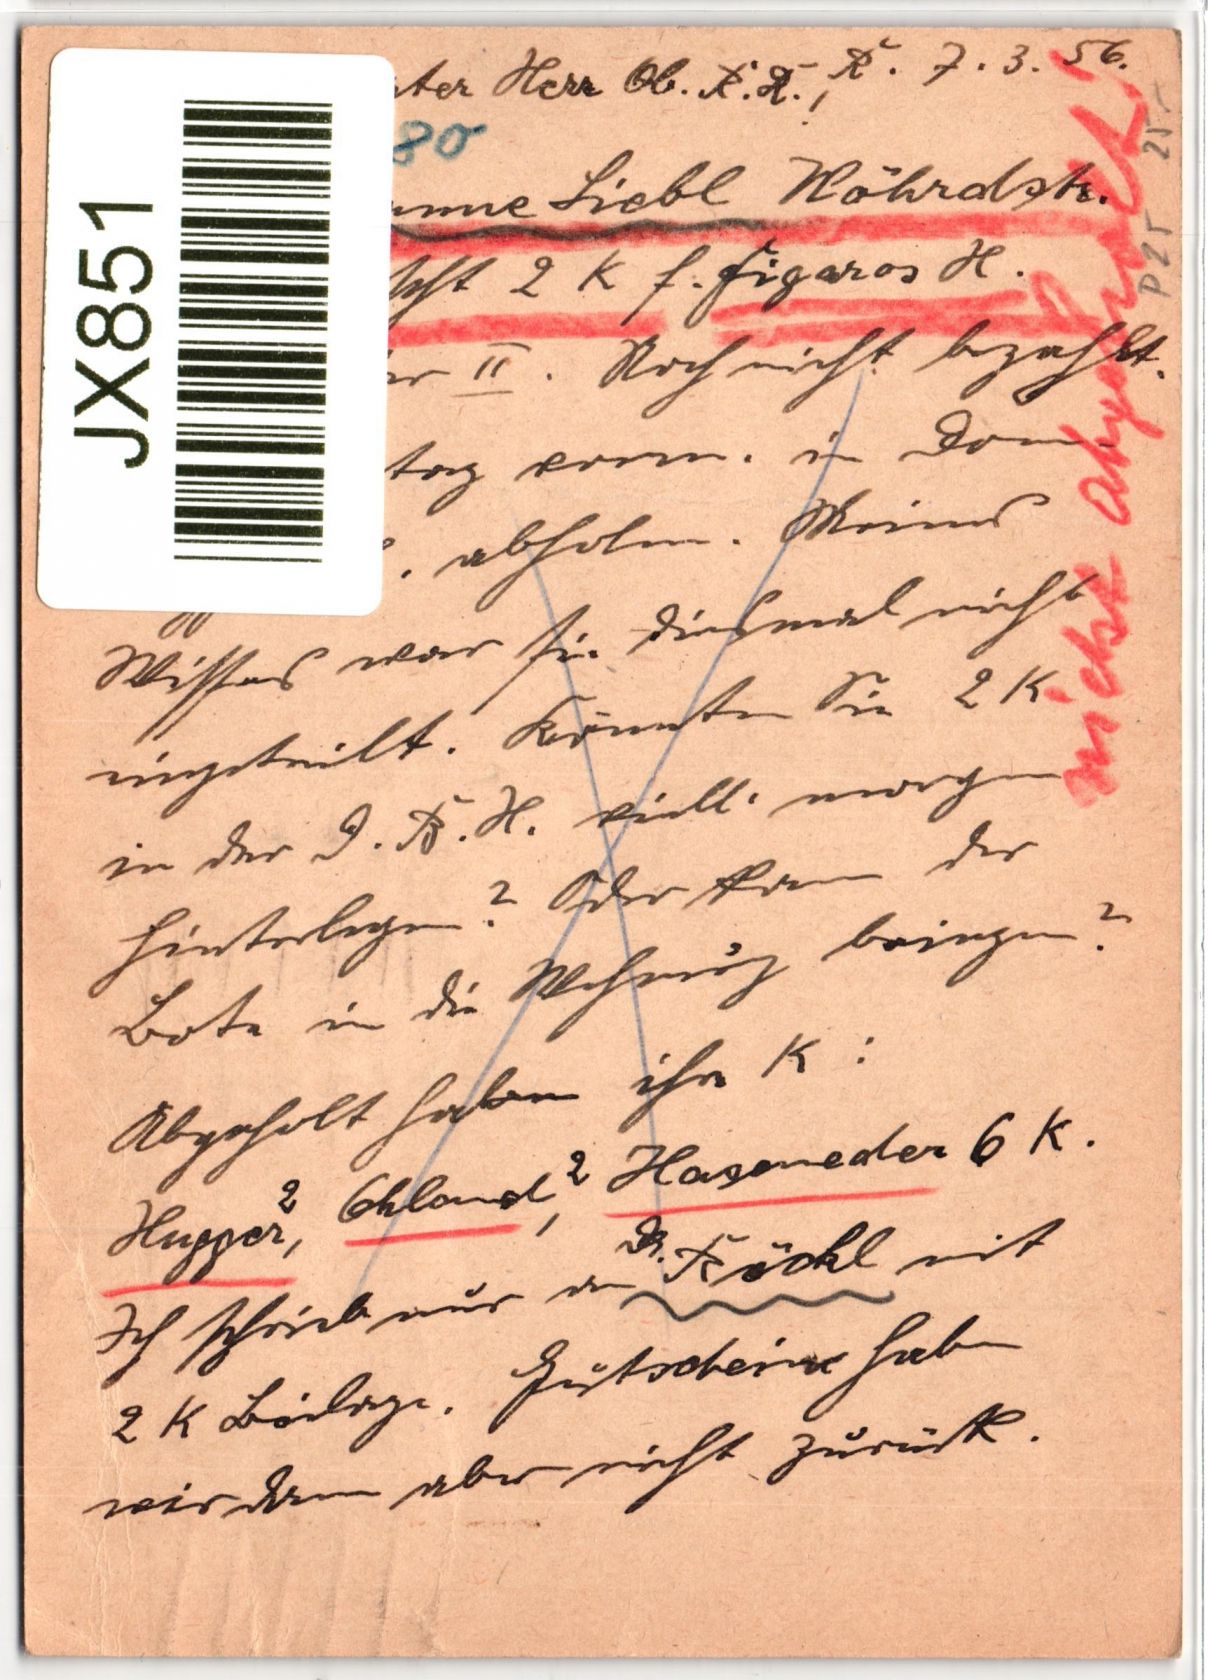 JX851
ter Herr Ob. R.R.! R. 7.3.56.
80
Liebl Wöhrdstr.
2 K f. Figaros H.
II. Noch nicht bezahlt.
tag vorm. in Dom-
. abholen. Meines
Wissens war sie diesmal nicht
eingeteilt. Könnten Sie 2 K
in der D.K.H. viell. morgen
hinterlegen? Oder kann der
Bote in die Wohnung bringen?
Abgeholt haben ihre K:
Hupper 2, Ohland, 2 Haseneder 6 K.
Ich schrieb nur an Dr. Köckl mit
2 K Beilage. Gutscheine haben
wir dann aber nicht zurück.
nicht abgeholt!
P 25 25